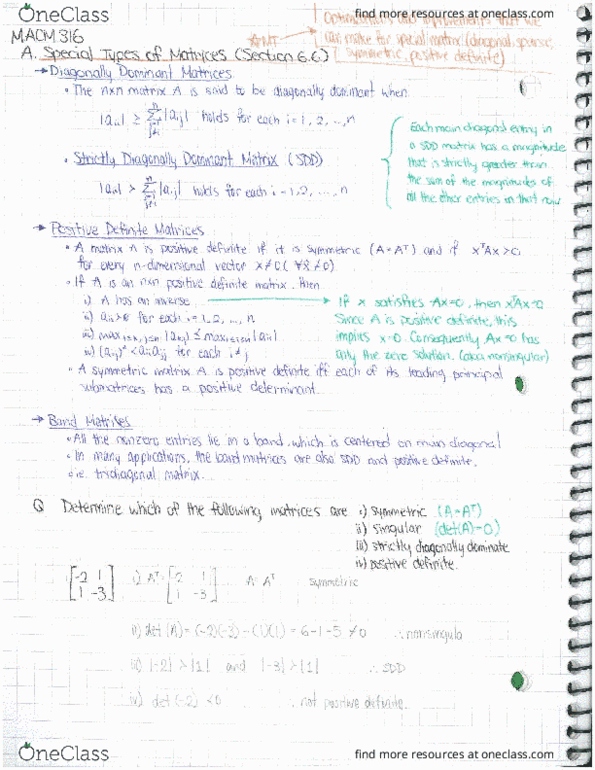 OneClass
find more resources at oneclass.com
MACM 316
Optimizations and improvements that we
can make for special matrix (diagonal, sparse,
symmetric, positive definite)
A. Special Types of Matrices (Section 6.6)
→ Diagonally Dominant Matrices
• The nxn matrix A is said to be diagonally dominant when
|aii| ≥ Σ |aij| holds for each i = 1, 2, ..., n
• Strictly Diagonally Dominant Matrix (SDD)
|aii| > Σ |aij| holds for each i = 1, 2, ..., n
Each main diagonal entry in
a SDD matrix has a magnitude
that is strictly greater than
the sum of the magnitudes of
all the other entries in that row
→ Positive Definite Matrices
• A matrix A is positive definite if it is symmetric (A = Aᵀ) and if xᵀAx > 0
for every n-dimensional vector x ≠ 0 (∀x̄ ≠ 0)
• If A is an nxn positive definite matrix, then
i) A has an inverse
ii) aii > 0 for each i = 1, 2, ..., n
iii) max |akj| ≤ max |aii|
iv) (aij)² < aii ajj for each i ≠ j
If x satisfies Ax = 0, then xᵀAx = 0
Since A is positive definite, this
implies x = 0. Consequently Ax = 0 has
only the zero solution. (aka nonsingular)
• A symmetric matrix A is positive definite iff each of its leading principal
submatrices has a positive determinant.
→ Band Matrises
• All the nonzero entries lie in a band which is centered on main diagonal
• In many applications, the band matrices are also SDD and positive definite.
• i.e. tridiagonal matrix.
Q Determine which of the following matrices are i) symmetric (A = Aᵀ)
ii) singular (det(A) = 0)
iii) strictly diagonally dominate
iv) positive definite.
[-2 1
1 -3]
i) Aᵀ = [-2 1
1 -3]
A = Aᵀ symmetric
ii) det(A) = (-2)(-3) - (1)(1) = 6 - 1 = 5 ≠ 0 ∴ nonsingula
iii) |-2| > |1| and |-3| > |1| ∴ SDD
iv) det(-2) < 0 ∴ not positive definite.
OneClass
find more resources at oneclass.com